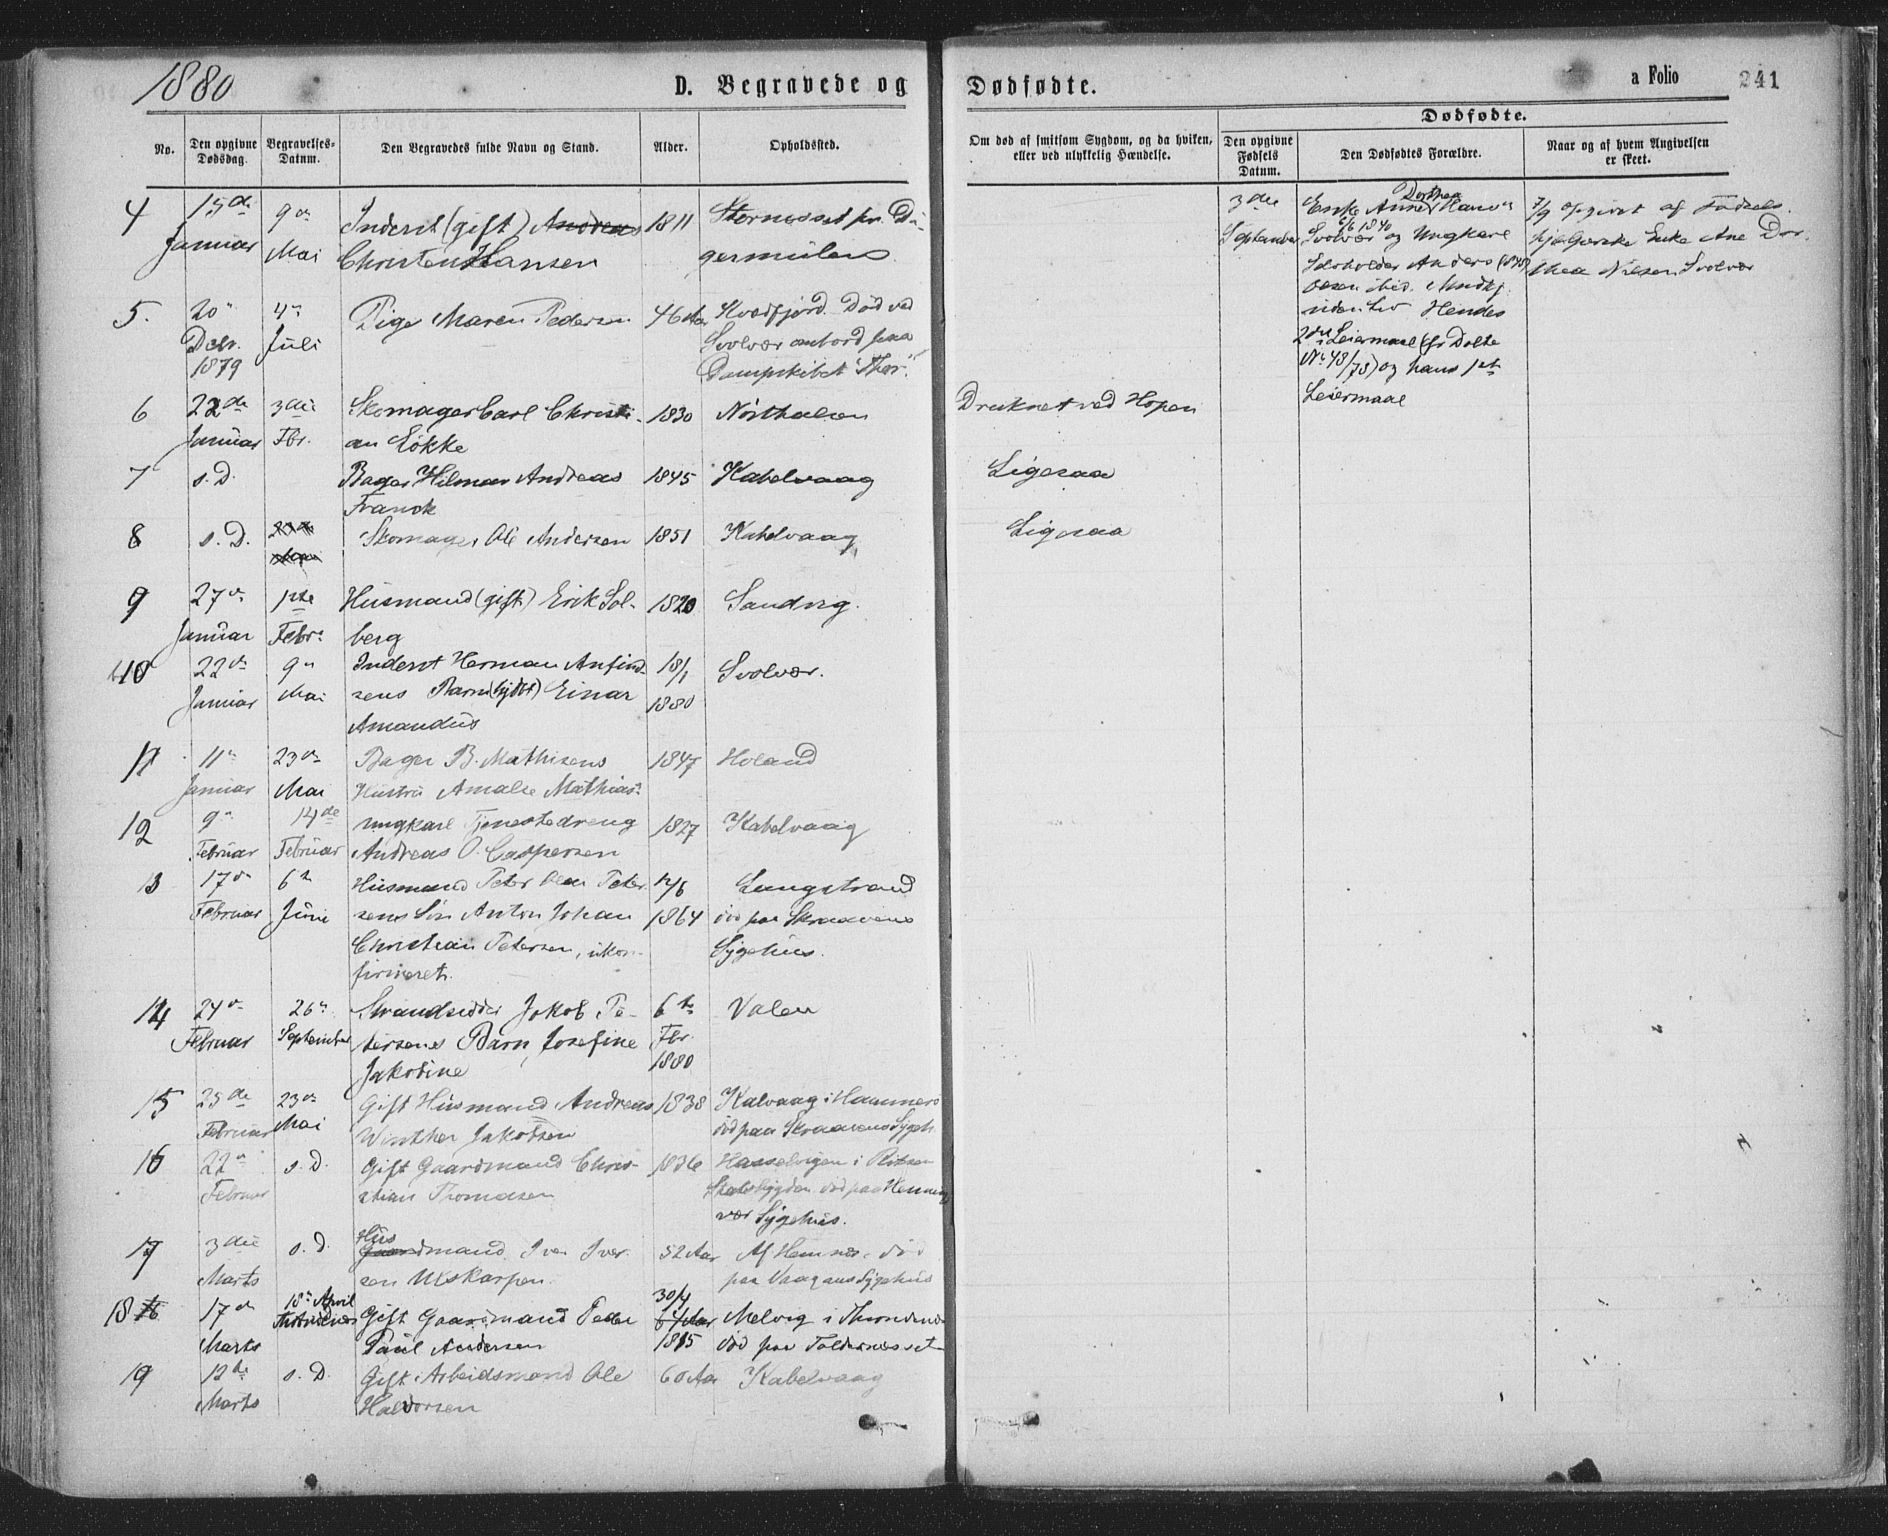 1880
D. Begravede og Dødfødte.
a Folio 241
No.
Den opgivne Dødsdag.
Begravelses-Datum.
Den Begravedes fulde Navn og Stand.
Alder.
Opholdssted.
Om død af smitsom Sygdom, og da hvilken, eller ved ulykkelig Hændelse.
Dødfødte.
Den opgivne Fødsels Datum.
Den Dødfødtes Forældre.
Naar og af hvem Angivelsen er skeet.
4 15de 9de Inderst (gift) Andreas 1811
Januar Mai Christen Hansen germulen
3die Enke Anne Dorthea 7/9 opgivet af Fødsels
September Svolvær og Ungkarl hjælperske Enke Ane Dor
Anders thea Nilsen Svolvær
Hendes
2det Leiermaal
No 48/78) og hans 1ste
Leiermaal
5. 20 4de Pige Maren Pedersen 46 Aar Kvædfjord. Død ved
Decbr. Juli Svolvær ombord paa
1879 Dampskibet "Thor".
6 22de 3die Skomager Carl Christi- 1830 Nordhalsen Druknet ved Hopen
Januar Fbr. an Løkke
7 s. D. Bager Hilmar Andreas 1845 Kabelvaag Ligesaa
Franck
8 s. D. Skomager Ole Andersen 1851 Kabelvaag Ligesaa
9 27de 1ste Husmand (gift) Erik Sol- 1820 Sandvig.
Januar Febr. berg
10 22de 9de Inderst Herman Anfind- 18/1 Svolvær.
Januar Mai sens Barn Einar 1880
Amandus
11 11te 23de Bager B. Mathisens 1847 Holand
Januar Mai Hustru Amalie Mathias
12 9de 14de Ungkarl Tjenestedreng 1827 Kabelvaag
Februar Februar Andreas O. Caspersen
13 17de 6te Husmand Peter Olea Peter- Langstrand
Februar Juni sens Søn Anton Johan 1864 død paa Skraavens
Christian Petersen, ukon- Sygehus.
firmeret.
14 24de 26de Strandsidder Jakob Pe- 6te Valen
Februar September tersens Barn, Josefine Fbr.
Jakobine 1880
15 25de 23de Gift Husmand Andreas 1838 Kalvaag i Hammerø
Februar Mai Winther Jakobsen død paa Skraavens Sygeh.
16 22de s. D. Gift Gaardmand Chris- 1836 Hasselvigen i Rissen
Februar tian Thomasen Stadsbygden død paa Henning
vær Sygehus.
17 3die s. D. Husmand Iver Iver- 52 Aar Af Hemnæs død
Marts sen Ulskarpen. paa Vaagans Sygehus
18 17de 18de April Gift Gaardmand Peder 30/4 Melvig i
Marts Paul Andersen 1815 død paa
19 12te s. D. Gift Arbeidsmand Ole 60 Aar Kabelvaag
Marts Halvorsen